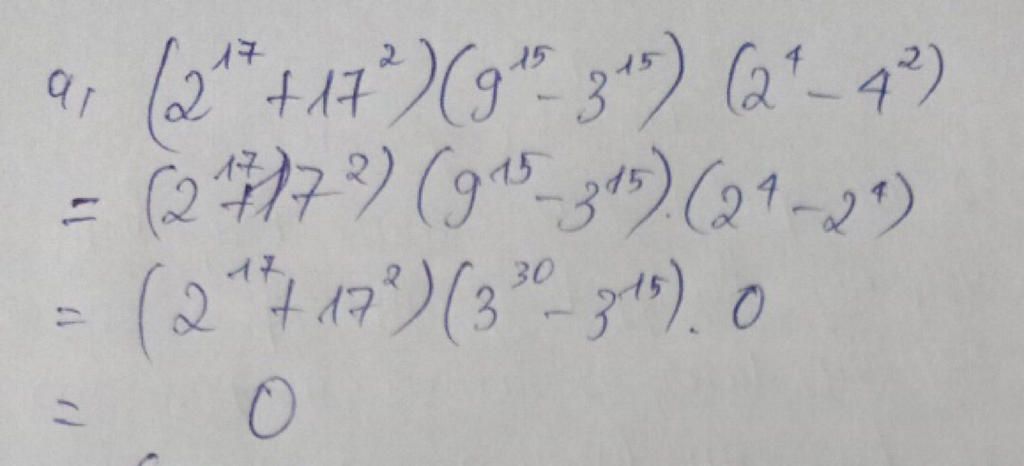 a, (2¹⁷ + 17²)(9¹⁵ - 3¹⁵) (2⁴ - 4²)
= (2¹⁷ + 17²) (9¹⁵ - 3¹⁵).(2⁴ - 2⁴)
= (2¹⁷ + 17²)(3³⁰ - 3¹⁵). 0
= 0